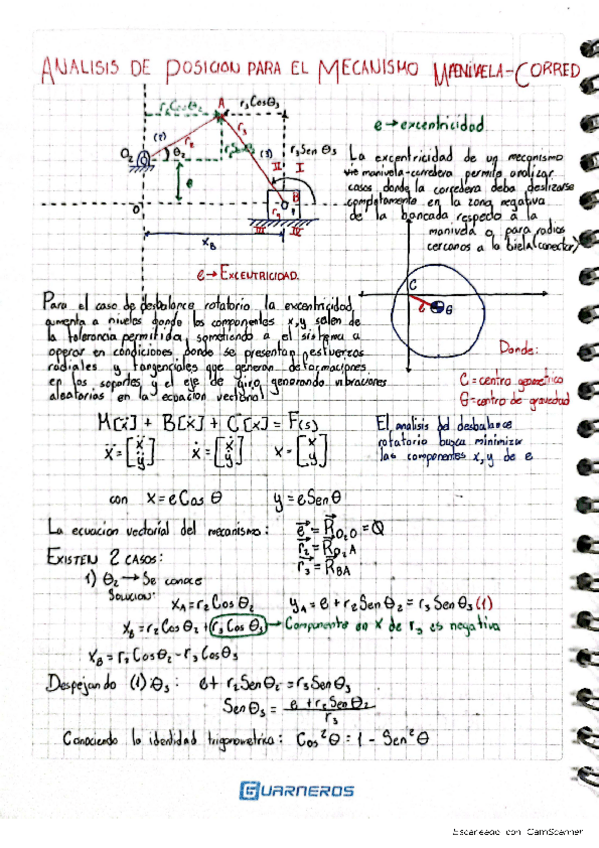 ANALISIS DE POSICION PARA EL MECANISMO MANIVELA-CORRED
r2Cosθ2
A
r3Cosθ3
e→excentricidad
(2)
r2
r3
O2
θ2
(3)
r3Senθ3
II
I
e
B
r4
O
III
IV
XB
La excentricidad de un mecanismo
manivela-corredera permite analizar
casos donde la corredera deba deslizarse
completamente en la zona negativa
de la bancada respecto a la
manivela o para radios
cercanos a la biela (conector)
e→EXCENTRICIDAD.
C
e
G
Para el caso de desbalance rotatorio la excentricidad
aumenta a niveles donde los componentes x,y salen de
la tolerancia permitida, sometiendo a el sistema a
operar en condiciones donde se presentan esfuerzos
radiales y tangenciales que generan deformaciones
en los soportes y el eje de giro generando vibraciones
aleatorias en la ecuacion vectorial
Donde:
C=centro geometrico
G=centro de gravedad
M[ẍ] + B[ẋ] + C[x] = F(s)
ẍ=[ẍ ÿ] ẋ=[ẋ ẏ] x=[x y]
El analisis del desbalance
rotatorio busca minimizar
las componentes x,y de e
con x=eCosθ y=eSenθ
La ecuacion vectorial del mecanismo: e = RO2O = 0
r2 = RO2A
r3 = RBA
EXISTEN 2 CASOS:
1) θ2→Se conoce
SOLUCION:
XA=r2Cosθ2 yA=e+r2Senθ2=r3Senθ3 (1)
XB=r2Cosθ2+r3Cosθ3→Componente en X de r3 es negativa
XB=r2Cosθ2-r3Cosθ3
Despejando (1) θ3: e+r2Senθ2=r3Senθ3
Senθ3=e+r2Senθ2/r3
Conociendo la identidad trigonometrica: Cos²θ=1-Sen²θ
GUARNEROS
Escaneado con CamScanner